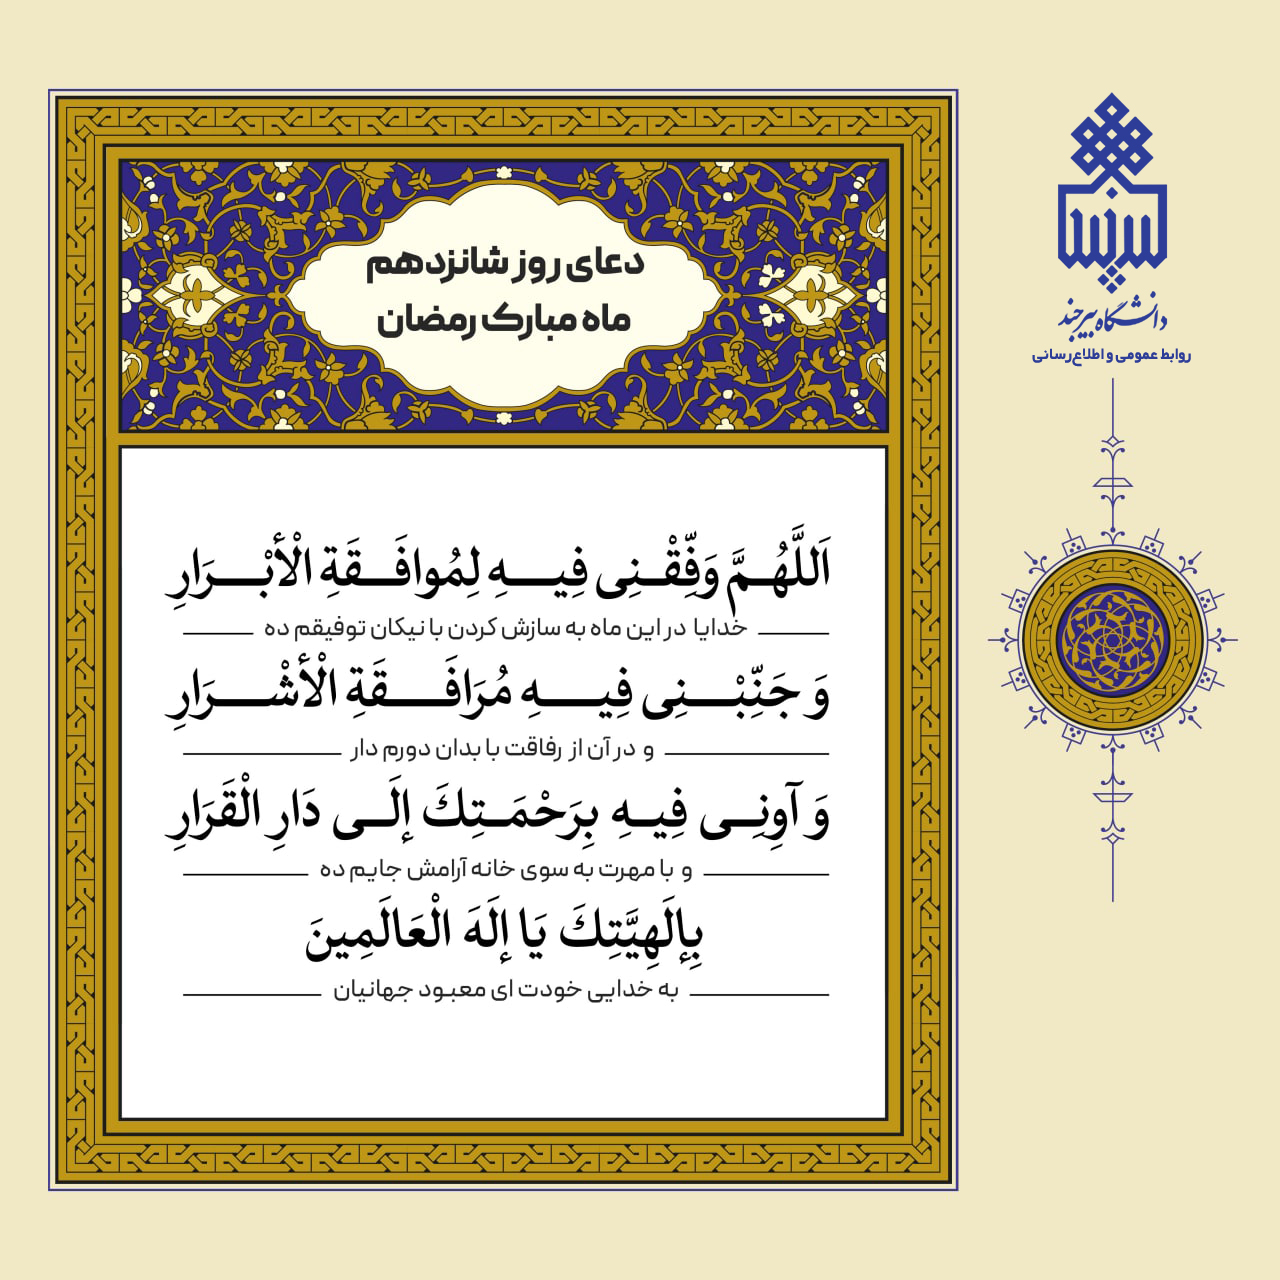 دعای روز شانزدهم
ماه مبارک رمضان
اَللَّهُمَّ وَفِّقْنِی فِیهِ لِمُوافَقَةِ الْأَبْرَارِ
خدایا در این ماه به سازش کردن با نیکان توفیقم ده
وَ جَنِّبْنِی فِیهِ مُرَافَقَةِ الْأَشْرَارِ
و در آن از رفاقت با بدان دورم دار
وَ آوِنِی فِیهِ بِرَحْمَتِكَ إِلَی دَارِ الْقَرَارِ
و با مهرت به سوی خانه آرامش جایم ده
بِإِلَهِیَّتِكَ یَا إِلَهَ الْعَالَمِینَ
به خدایی خودت ای معبود جهانیان
دانشگاه بیرجند
روابط عمومی و اطلاع‌رسانی